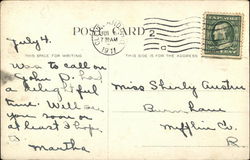 POST CARD
2
1911
7 AM
THIS SPACE FOR WRITING
THIS SIDE IS FOR THE ADDRESS
July 4.
Was to call on
John D. had
a delightful
time. Will see
you soon or
at least I hope
so.
Martha
Miss Shirly Austin
Burnham
Mifflin Co.